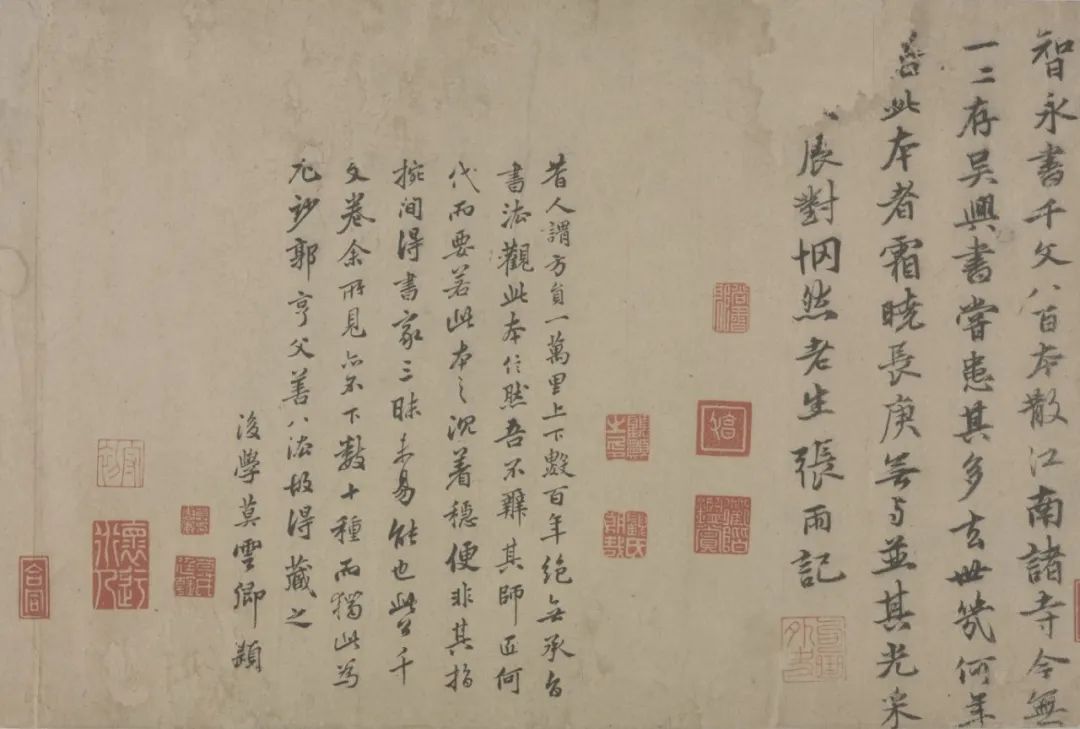 智永書千文八百本散江南諸寺今無
一二存吳興書嘗患其多去世幾何年
此本者霜曉長庚無与並其光采
展對惘然老生張雨記
昔人謂方員一萬里上下數百年絕無承旨
書法觀此本信然吾不難其師匠何
代而要若此本之沉着穩便非其指
捥間得書家三昧未易能也此公千
文卷余所見亦不下數十種而獨此為
尤妙郭亨父善八法故得藏之
後學莫雲卿題
合同